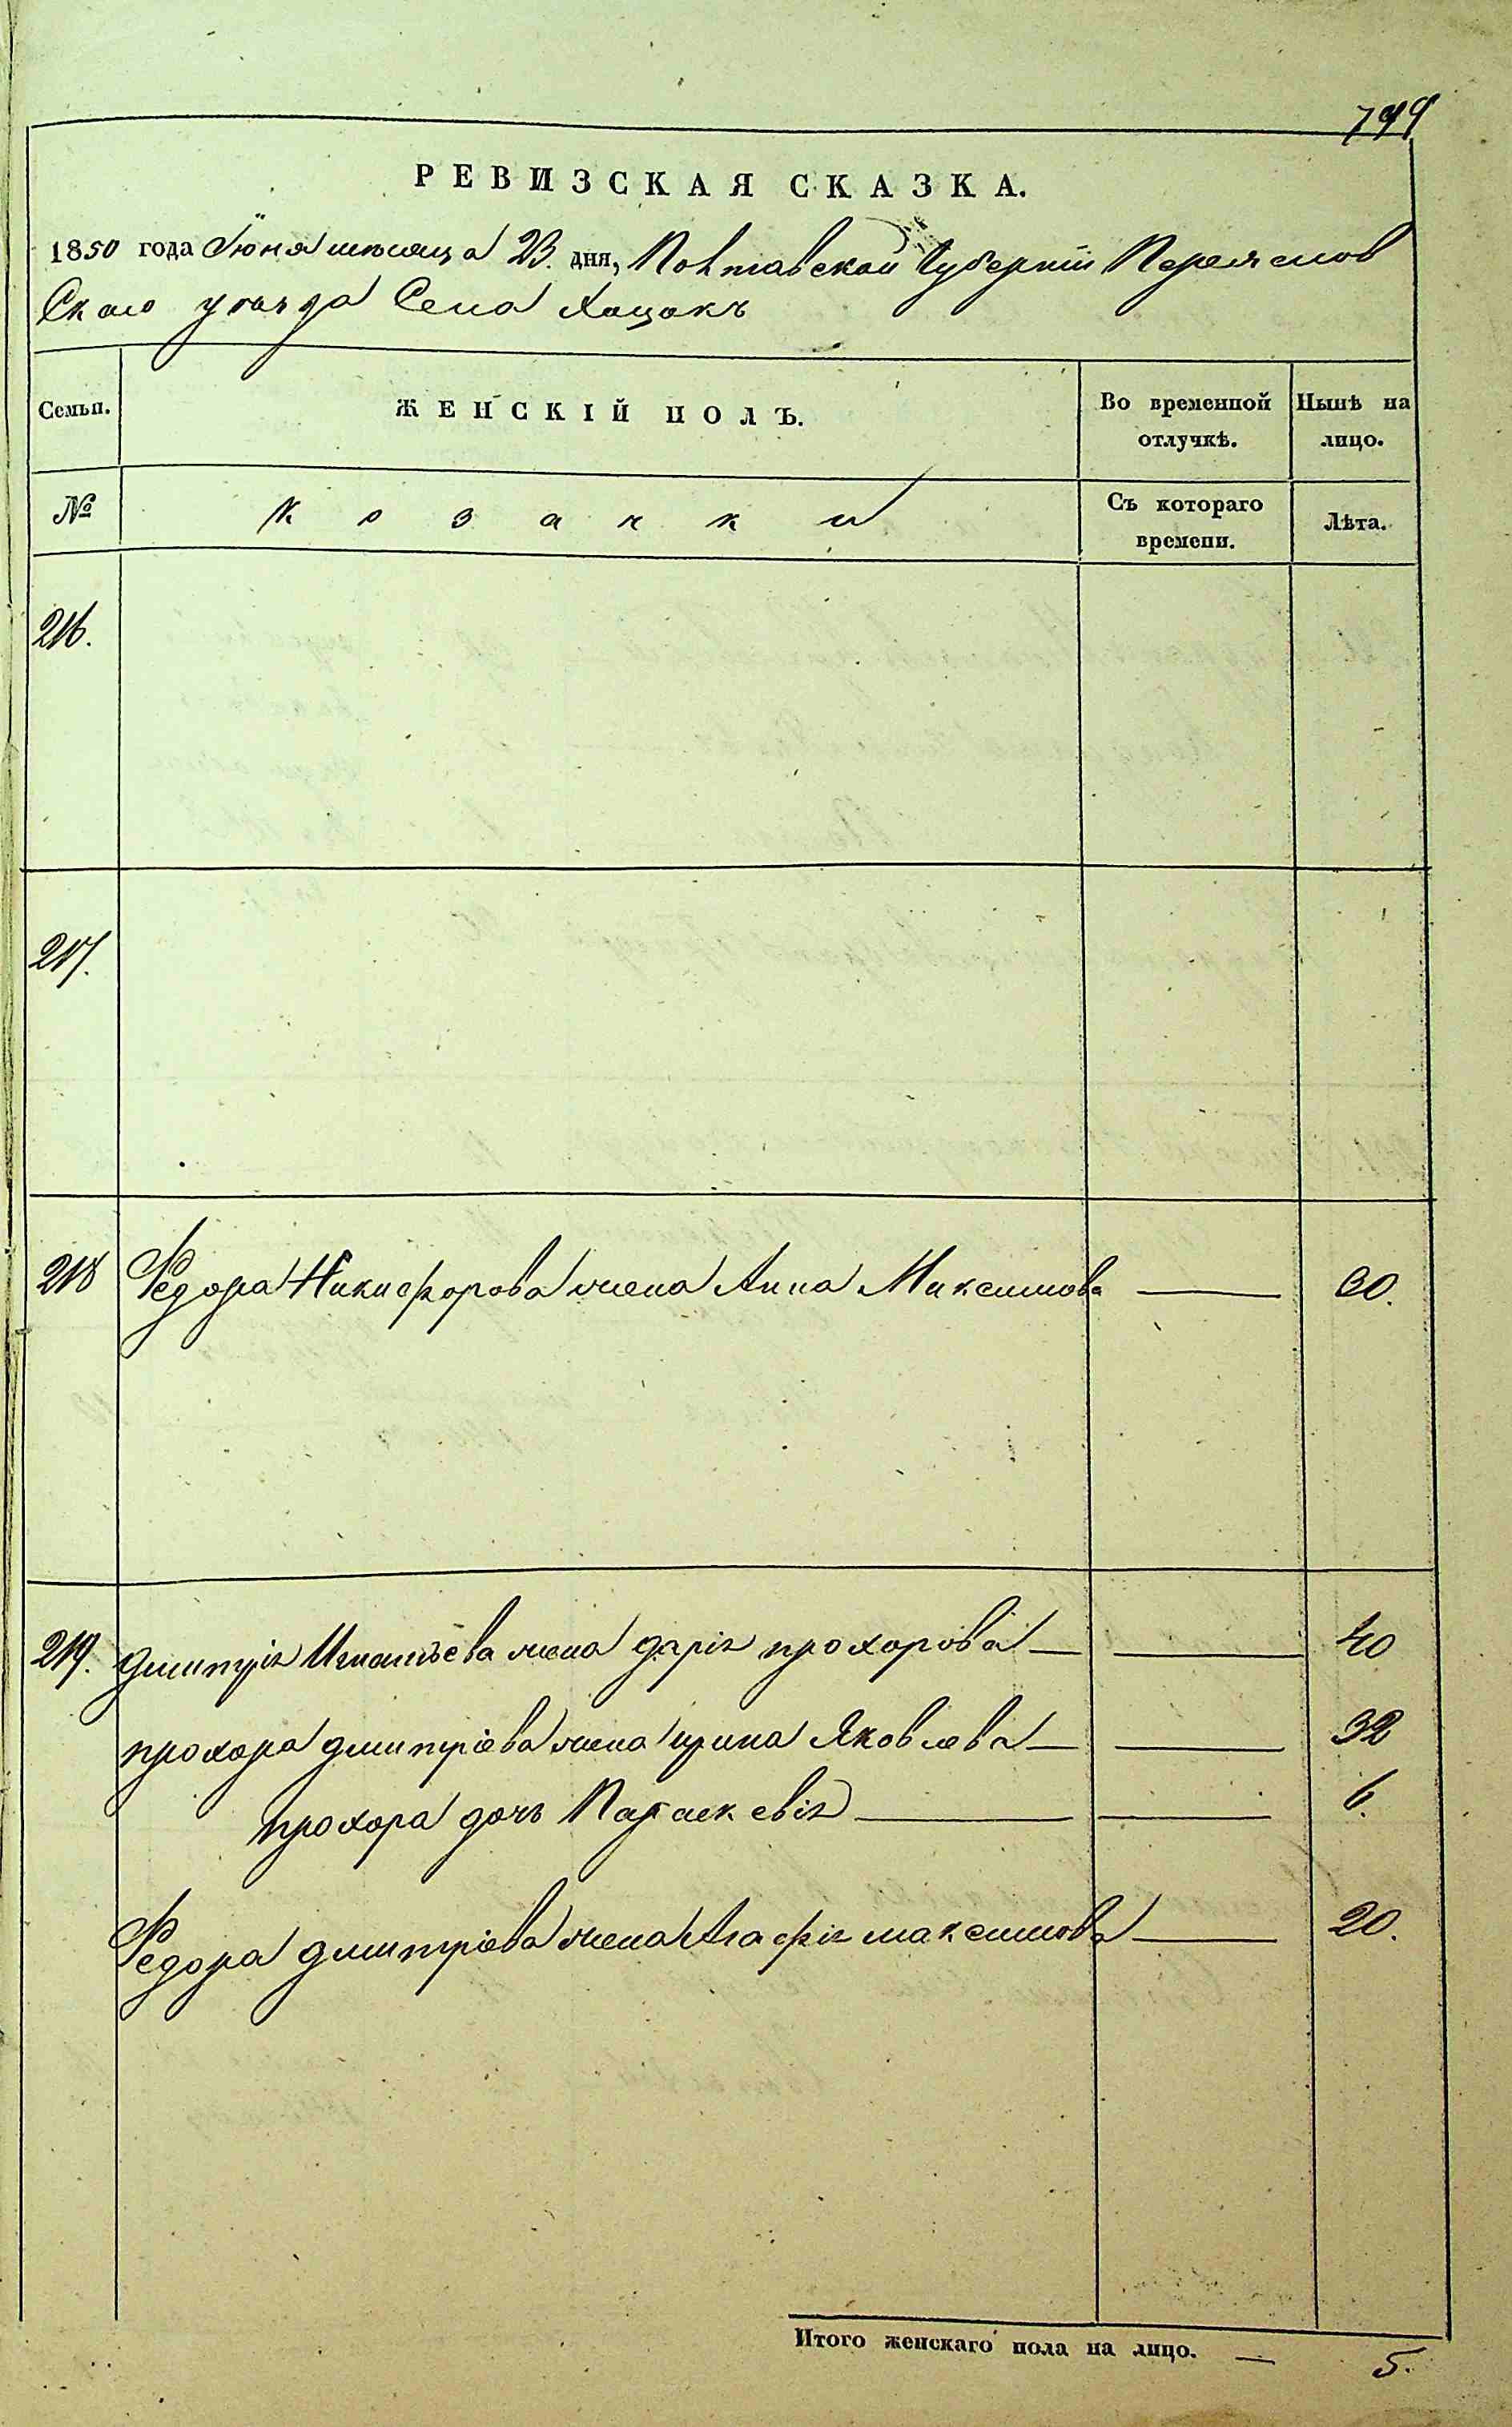 799
РЕВИЗСКАЯ СКАЗКА.
1850 года Июня мѣсяца 23. дня, Полтавской Губерніи Переяслов
Скаго уѣзда Села Хоцокъ
Семьи. ЖЕНСКІЙ ПОЛЪ. Во временной отлучкѣ. Нынѣ на лицо.
№ Козачки Съ котораго времени. Лѣта.
216.
217.
218 Федора Никифорова жена Анна Максимова — 30.
219. Дмитрія Игнатьева жена дарія прохорова — — 40
прохора дмитріева жена ирина Яковлева — — 32
прохора дочь Параскевія — — 6.
Федора дмитріева жена Агафія максимова — 20.
Итого женскаго пола на лицо. — 5.